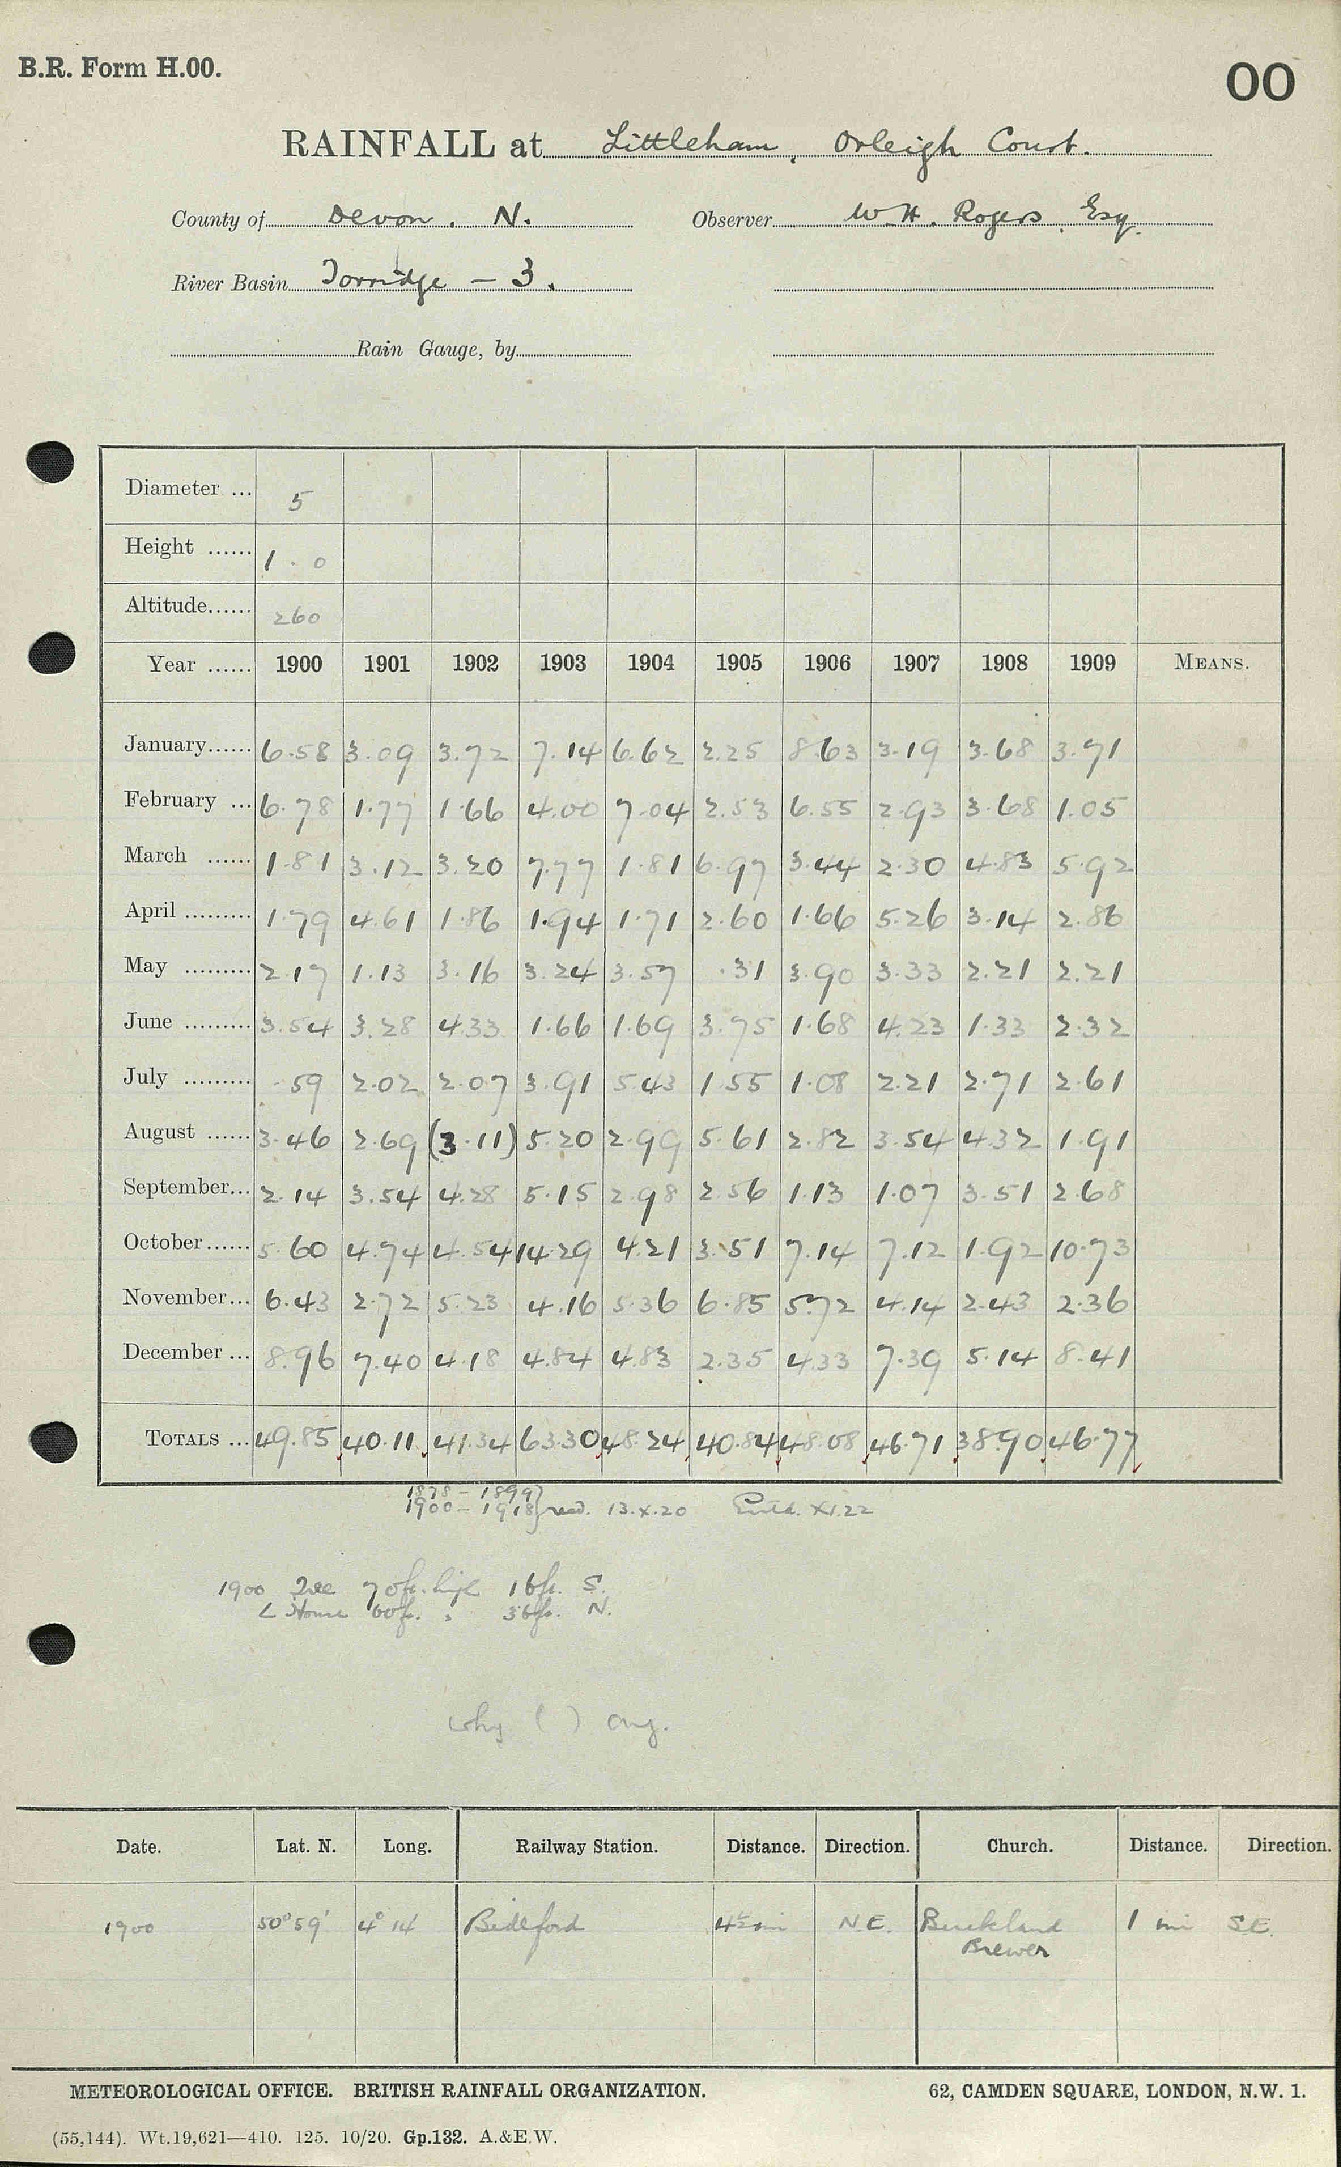 B.R. Form H.00.
00
RAINFALL at Littleham, Orleigh Court.
County of Devon. N. Observer W.H. Rogers, Esq.
River Basin Torridge - 3.
Rain Gauge, by
Diameter ... 5
Height ...... 1.0
Altitude...... 260
Year ...... 1900 1901 1902 1903 1904 1905 1906 1907 1908 1909 MEANS.
January...... 6.58 3.09 3.72 7.14 6.62 2.25 8.63 3.19 3.68 3.71
February ... 6.78 1.77 1.66 4.00 7.04 2.53 6.55 2.93 3.68 1.05
March ...... 1.81 3.12 3.20 7.77 1.81 6.97 3.44 2.30 4.83 5.92
April ......... 1.79 4.61 1.86 1.94 1.71 2.60 1.66 5.26 3.14 2.86
May ......... 2.17 1.13 3.16 3.24 3.57 .31 3.90 3.33 2.21 2.21
June ......... 3.54 3.28 4.33 1.66 1.69 3.75 1.68 4.23 1.33 2.32
July ......... .59 2.02 2.07 3.91 5.43 1.55 1.08 2.21 2.71 2.61
August ...... 3.46 2.69 (3.11) 5.20 2.99 5.61 2.82 3.54 4.32 1.91
September... 2.14 3.54 4.28 5.15 2.98 2.56 1.13 1.07 3.51 2.68
October...... 5.60 4.74 4.54 14.29 4.21 3.51 7.14 7.12 1.92 10.73
November... 6.43 2.72 5.23 4.16 5.36 6.85 5.72 4.14 2.43 2.36
December ... 8.96 7.40 4.18 4.84 4.83 2.35 4.33 7.39 5.14 8.41
TOTALS ... 49.85 40.11 41.34 63.30 48.24 40.84 48.08 46.71 38.90 46.77
1878 - 1899}
1900 - 1918} recd. 13.X.20 Entd. XI.22
1900 Tree 70ft. high 16ft. S.
< House 60ft. " 36ft. N.
why ( ) Aug.
Date. Lat. N. Long. Railway Station. Distance. Direction. Church. Distance. Direction.
1900 50° 59' 4° 14' Bideford 4½ mi N.E. Buckland 1 mi S.E.
Brewer
METEOROLOGICAL OFFICE. BRITISH RAINFALL ORGANIZATION. 62, CAMDEN SQUARE, LONDON, N.W. 1.
(55,144). Wt.19,621—410. 125. 10/20. Gp.132. A.&E.W.